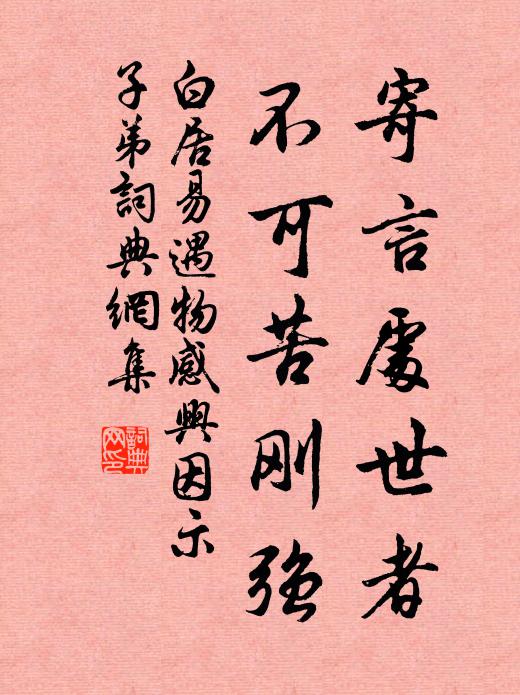 寄言處世者
不可苦刚强
白居易遇物感興因示
子弟詞典網集
詞典網印